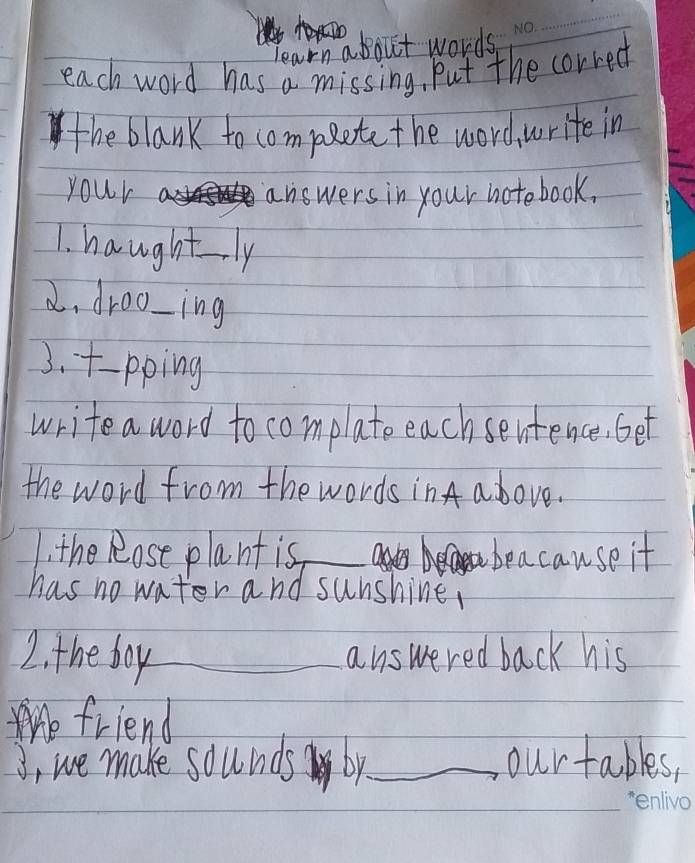 NO.
learn about words
each word has a missing. Put the correct
the blank to complete the word, write in
your answers in your notebook.
1. haught_ly
2. droo_ing
3. t_pping
write a word to complate each sentence. Get
the word from the words in A above.
1. the Rose plant is____ beacause it
has no water and sunshine,
2. the boy________answered back his
friend
3, we make sounds by______our tables,
*enlivo